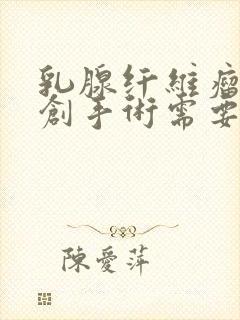 乳腺纤維瘤
創手術需要
陳愛萍